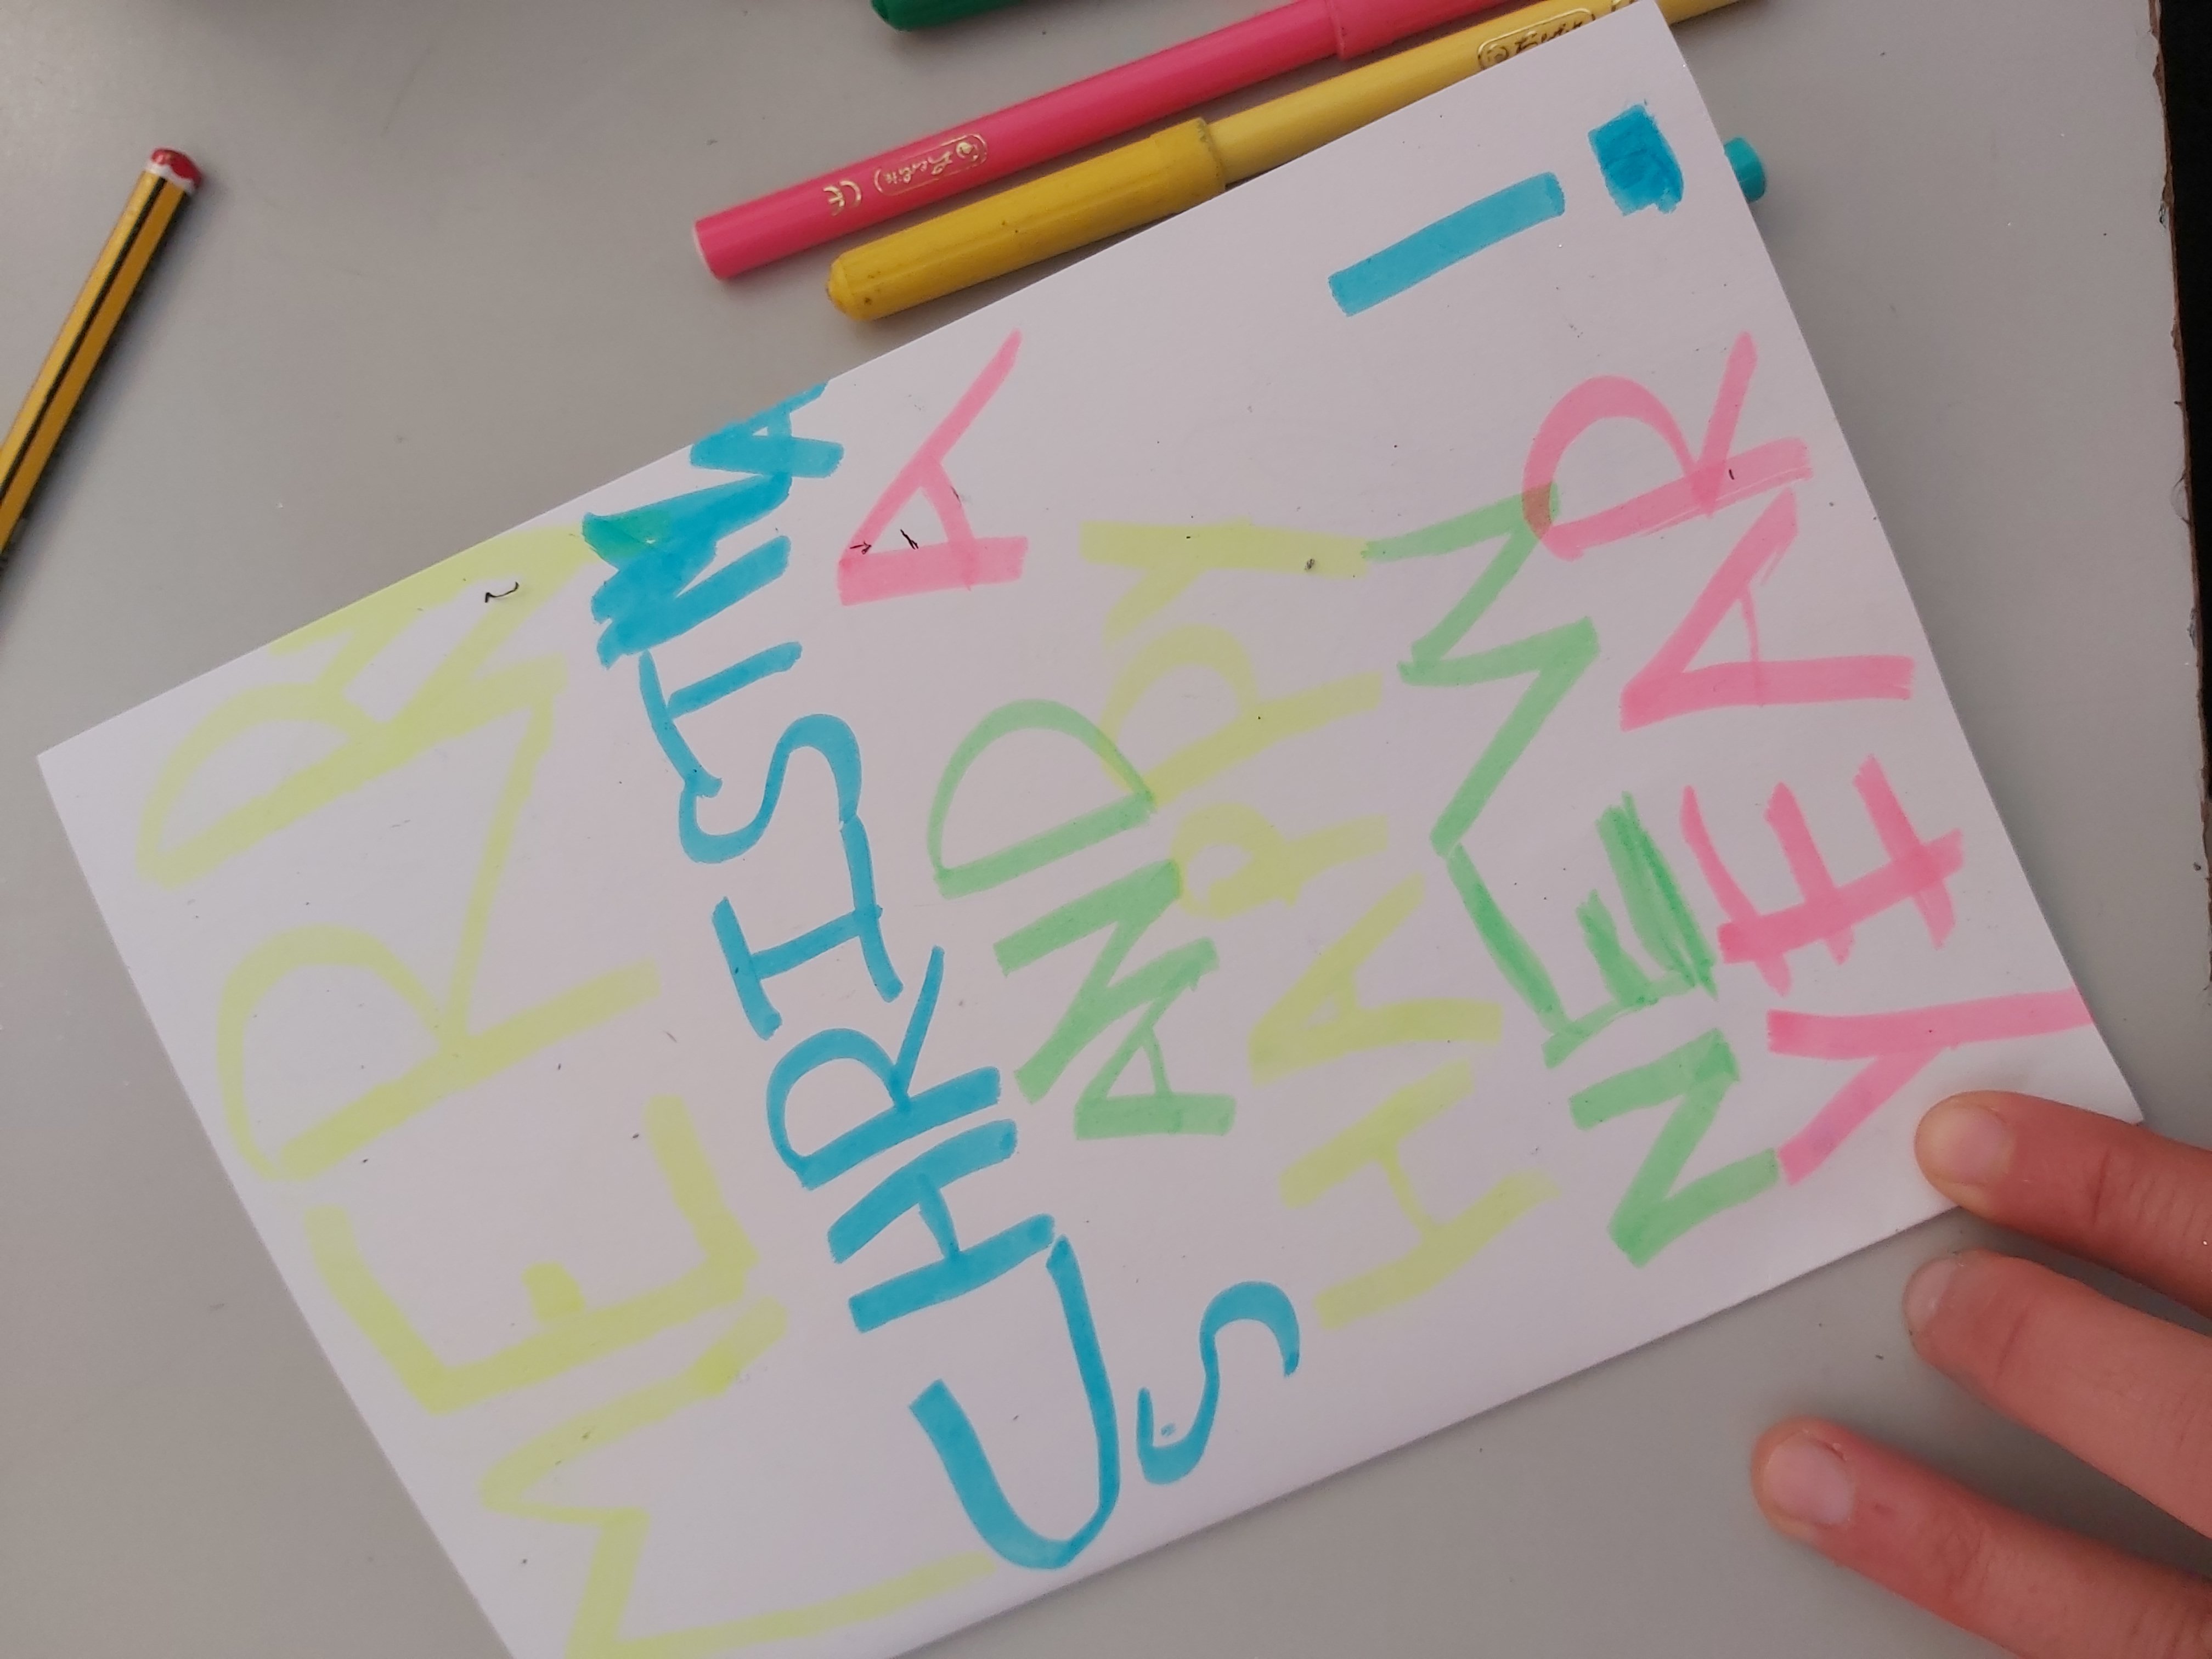 MERRY
CHRISTMA
S AND A
HAPPY
NEW !
YEAR
herlitz CE